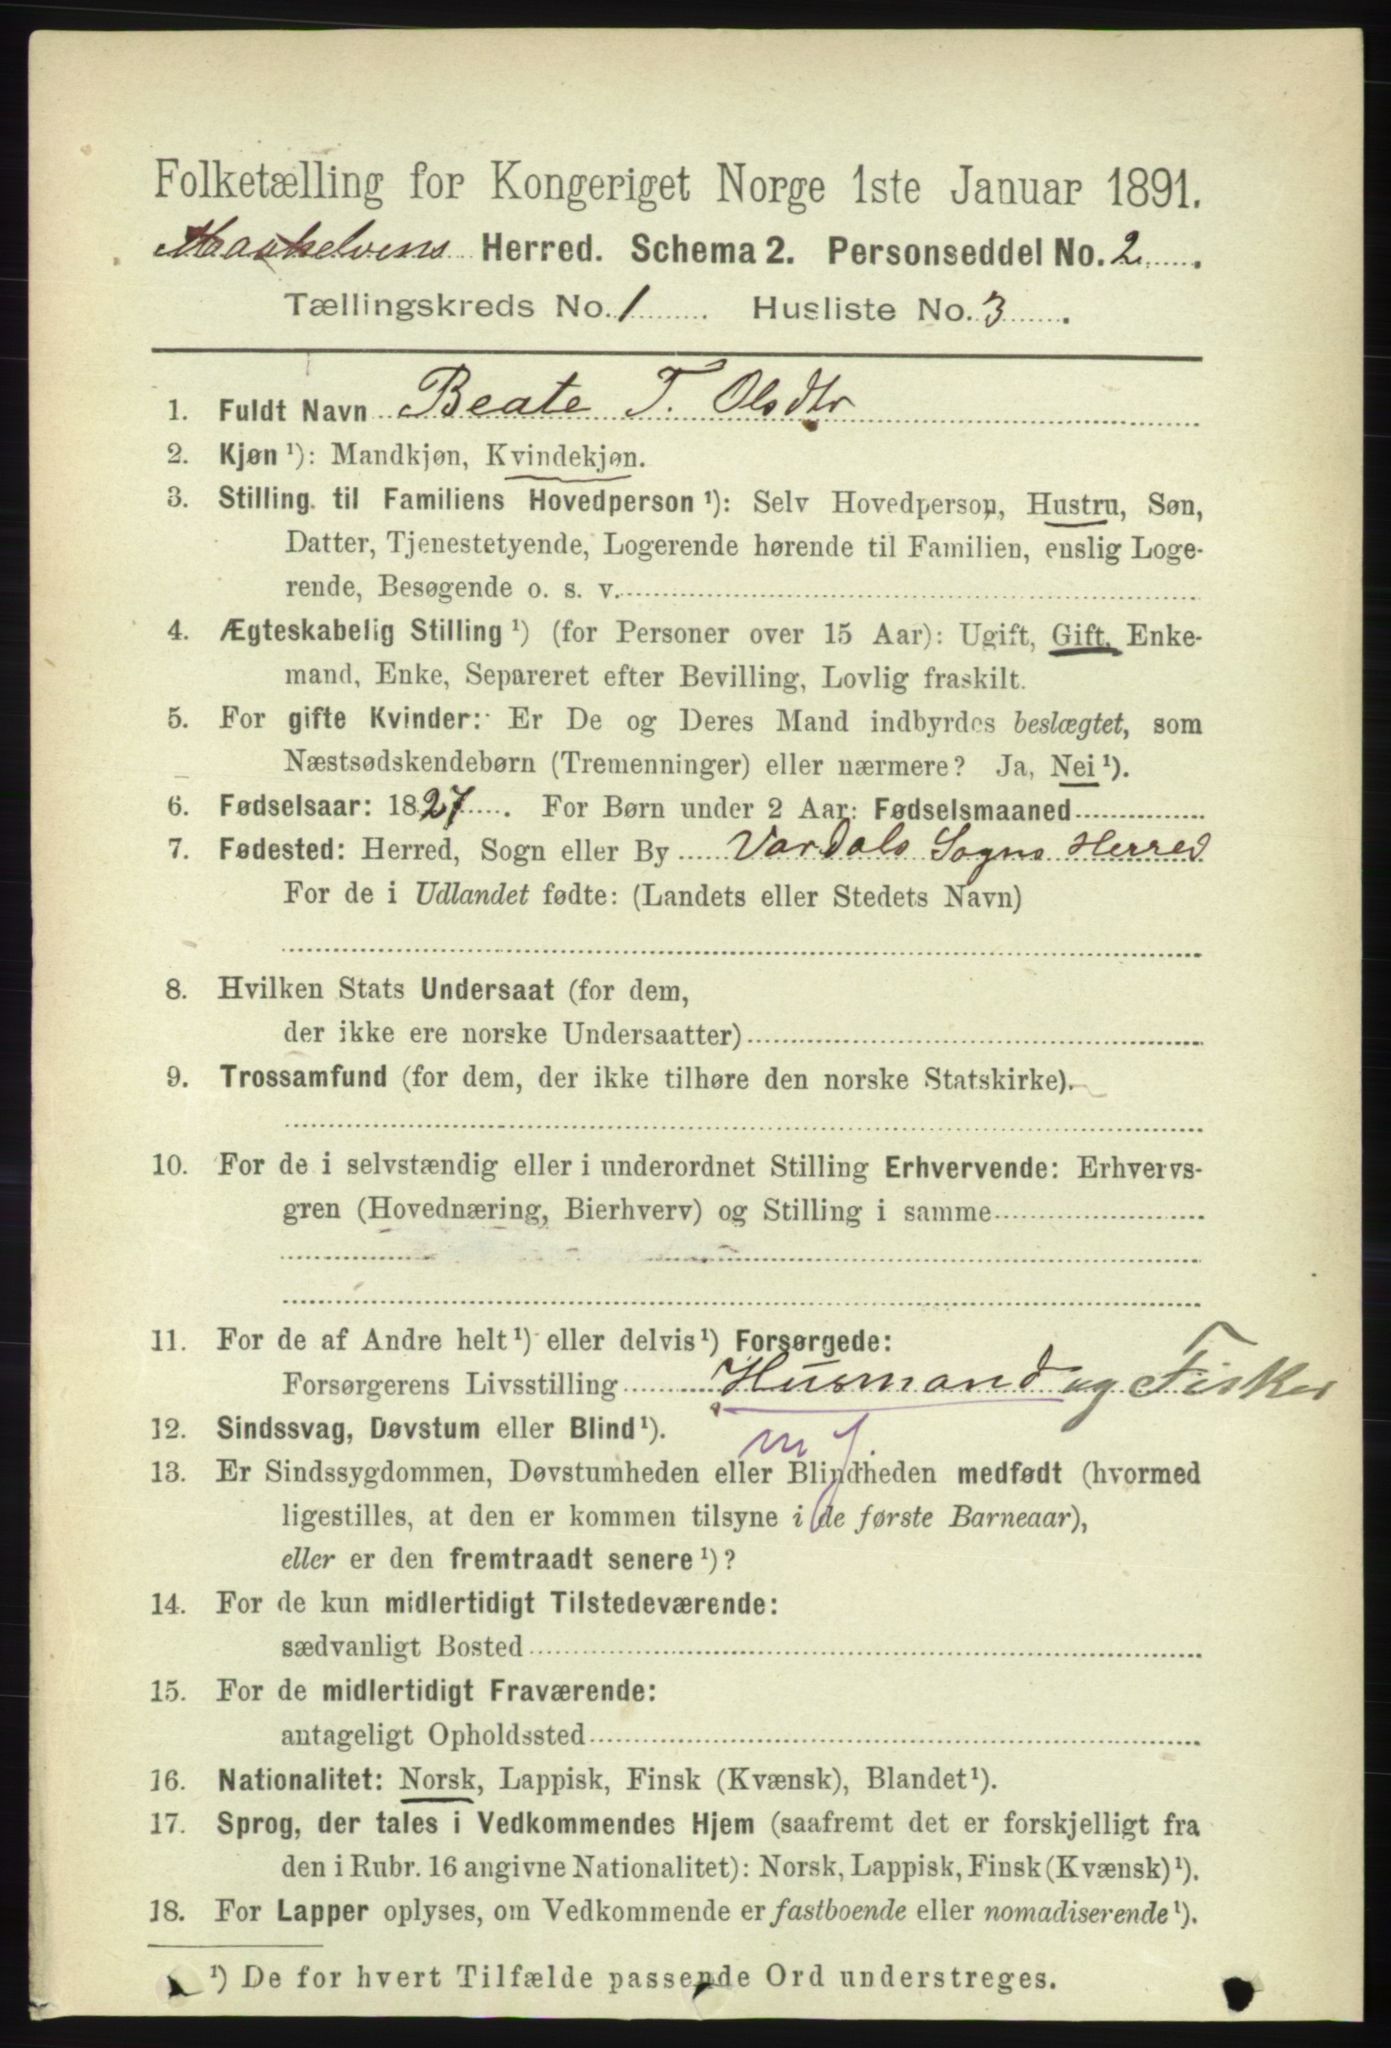 Folketælling for Kongeriget Norge 1ste Januar 1891.
Maaselvens Herred. Schema 2. Personseddel No. 2.
Tællingskreds No. 1. Husliste No. 3.
1. Fuldt Navn Beate T. Olsdtr
2. Kjøn ¹): Mandkjøn, Kvindekjøn.
3. Stilling til Familiens Hovedperson ¹): Selv Hovedperson, Hustru, Søn,
Datter, Tjenestetyende, Logerende hørende til Familien, enslig Loge-
rende, Besøgende o. s. v.
4. Ægteskabelig Stilling ¹) (for Personer over 15 Aar): Ugift, Gift, Enke-
mand, Enke, Separeret efter Bevilling, Lovlig fraskilt.
5. For gifte Kvinder: Er De og Deres Mand indbyrdes beslægtet, som
Næstsødskendebørn (Tremenninger) eller nærmere? Ja, Nei ¹).
6. Fødselsaar: 1827. For Børn under 2 Aar: Fødselsmaaned
7. Fødested: Herred, Sogn eller By Vardals Sogns Herred
For de i Udlandet fødte: (Landets eller Stedets Navn)
8. Hvilken Stats Undersaat (for dem,
der ikke ere norske Undersaatter)
9. Trossamfund (for dem, der ikke tilhøre den norske Statskirke).
10. For de i selvstændig eller i underordnet Stilling Erhvervende: Erhvervs-
gren (Hovednæring, Bierhverv) og Stilling i samme
11. For de af Andre helt ¹) eller delvis ¹) Forsørgede:
Forsørgerens Livsstilling Husmand og Fisker
12. Sindssvag, Døvstum eller Blind ¹).
m j.
13. Er Sindssygdommen, Døvstumheden eller Blindheden medfødt (hvormed
ligestilles, at den er kommen tilsyne i de første Barneaar),
eller er den fremtraadt senere ¹)?
14. For de kun midlertidigt Tilstedeværende:
sædvanligt Bosted
15. For de midlertidigt Fraværende:
antageligt Opholdssted
16. Nationalitet: Norsk, Lappisk, Finsk (Kvænsk), Blandet ¹).
17. Sprog, der tales i Vedkommendes Hjem (saafremt det er forskjelligt fra
den i Rubr. 16 angivne Nationalitet): Norsk, Lappisk, Finsk (Kvænsk) ¹).
18. For Lapper oplyses, om Vedkommende er fastboende eller nomadiserende ¹).
¹) De for hvert Tilfælde passende Ord understreges.